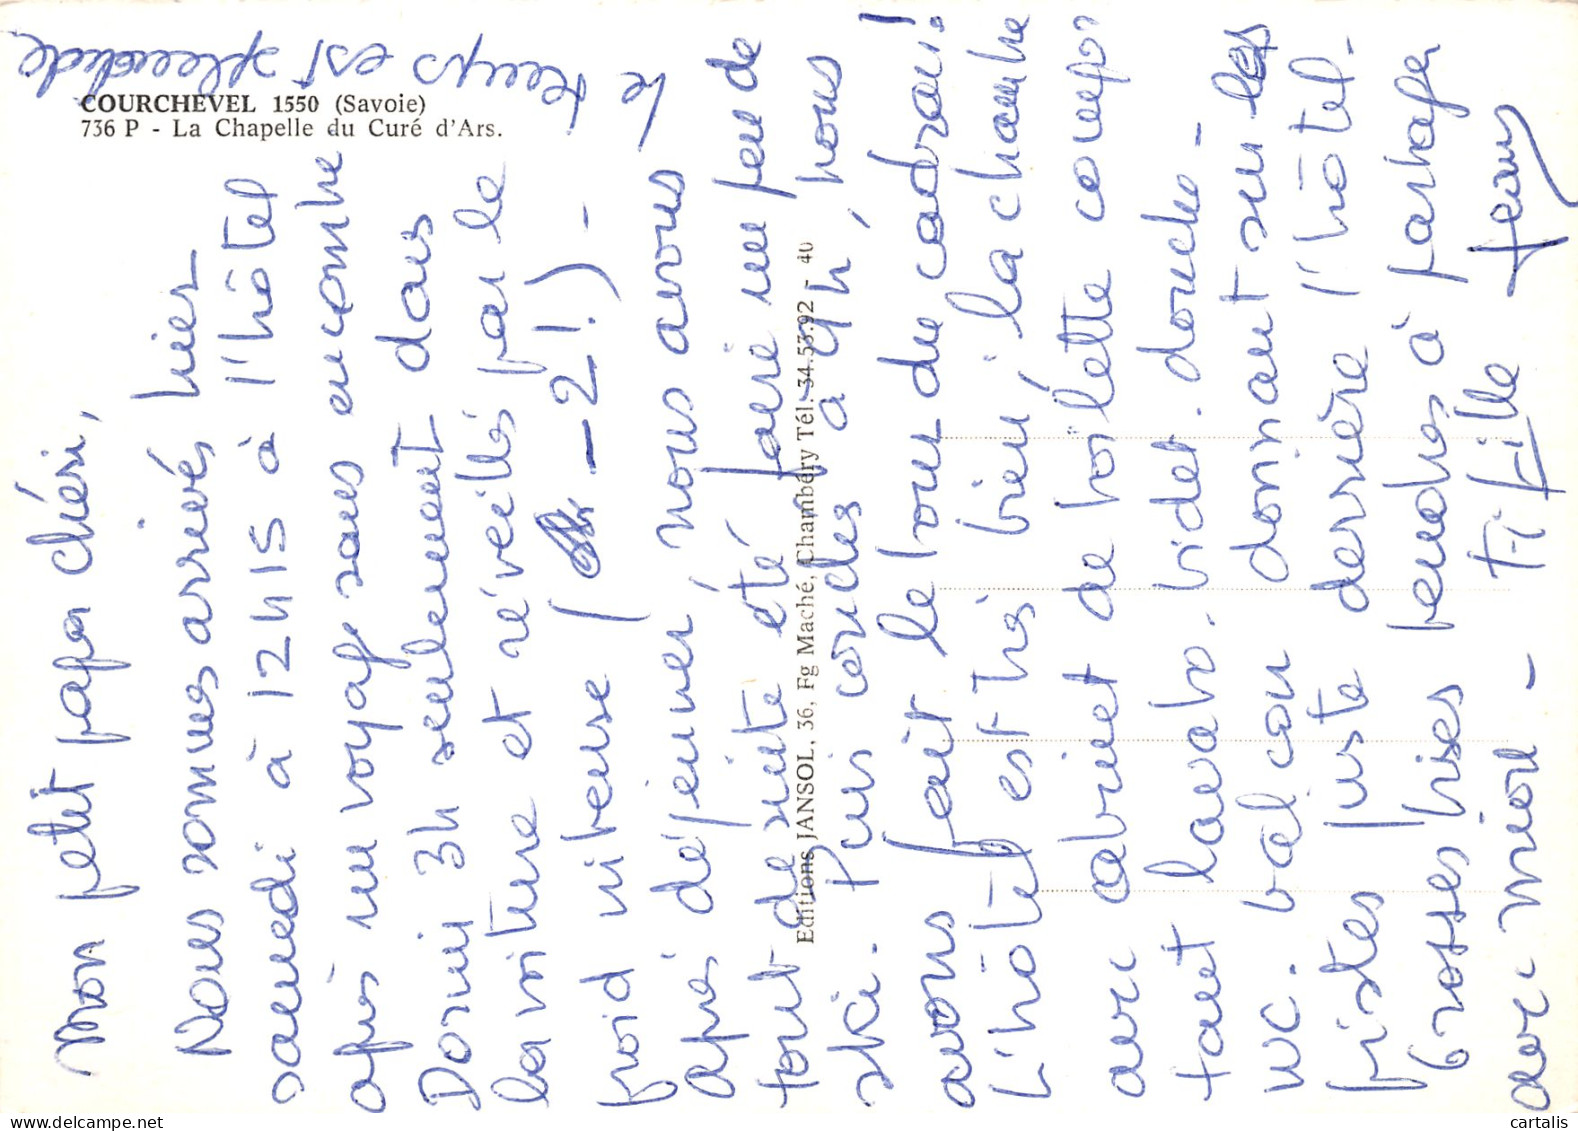 COURCHEVEL 1550 (Savoie)
736 P - La Chapelle du Curé d'Ars.
Editions JANSOL, 36, Fg Maché, Chambéry Tél. 34.53.92 - 40
Mon petit papa chéri,
Nous sommes arrivés hier
samedi à 12h15 à l'hôtel
après un voyage sans encombre
Dormi 3h seulement dans
la voiture et réveillés par le
froid vibreuse ( - 2!) -
après déjeuner nous avons
tout de suite été faire un peu de
ski. Puis couchés à 9h, nous
avons fait le tour du cadran!
L'hôtel est très bien, la chambre
avec cabinet de toilette compor
tant lavabo. bidet. douche -
wc. balcon donnant sur les
pistes juste derrière l'hôtel.
Grosses bises tendres à partager
avec mion - Ti fille Jean
le temps est splendide
cartalis.com